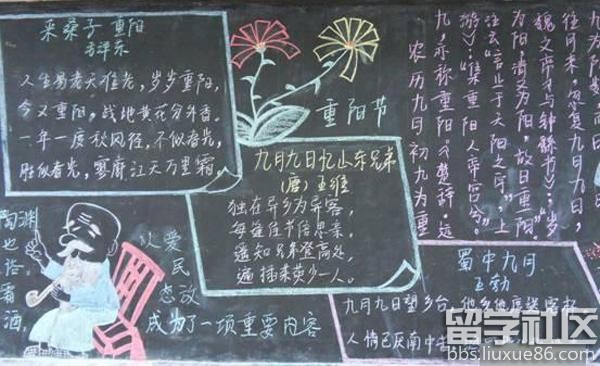 采桑子 重阳
毛泽东
人生易老天难老，岁岁重阳，
今又重阳，战地黄花分外香。
一年一度秋风劲，不似春光，
胜似春光，寥廓江天万里霜。
重阳节
九月九日忆山东兄弟
(唐) 王维
独在异乡为异客，
每逢佳节倍思亲。
遥知兄弟登高处，
遍插茱萸少一人。
往月来，忽复九月九日，
魏文帝《与钟繇书》：“岁
为阳，故曰重阳”。
注云“
游》：“集重阳入帝宫兮”。
九，亦称重阳。《楚辞·远
农历九月初九为重
蜀中九日
王勃
九月九日望乡台，他乡他席送客杯
人情已厌南中
陶渊
也
霜
酒，
以爱
民
成为了一项重要内容
留学社区
bbs.liuxue86.com